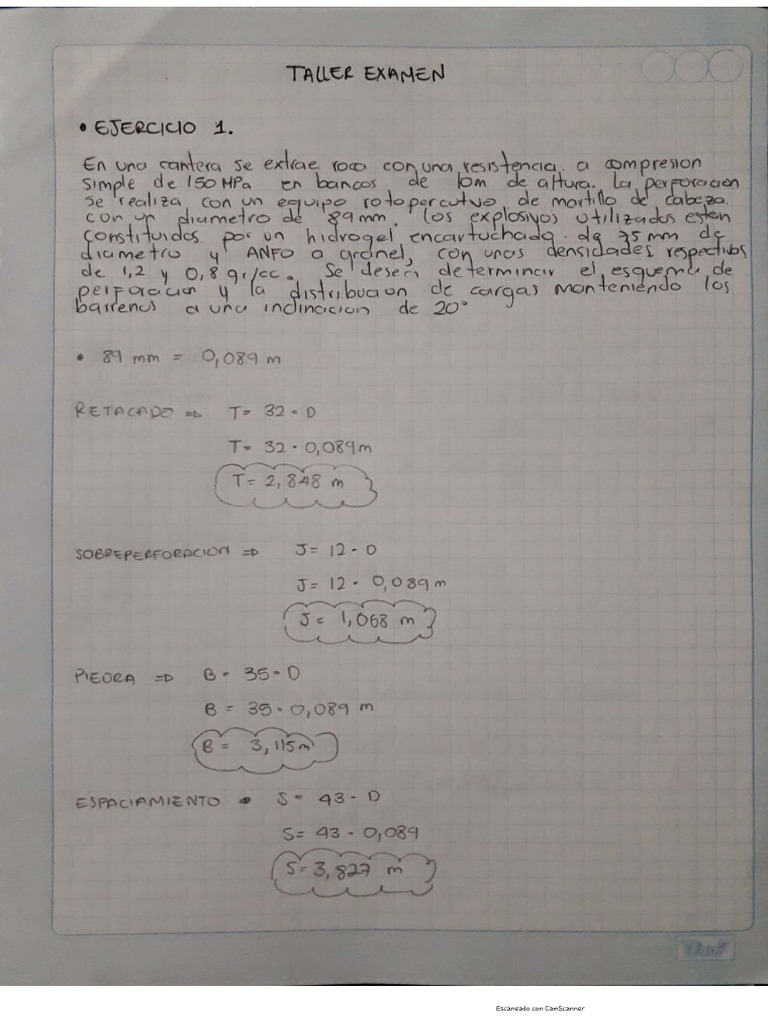 TALLER EXAMEN
• EJERCICIO 1.
En una cantera se extrae roca con una resistencia a compresion
simple de 150 MPa en bancos de 10m de altura. la perforación
se realiza con un equipo rotopercutivo de martillo de cabeza
con un diametro de 89mm. los explosivos utilizados estan
constituidos por un hidrogel encartuchado de 75 mm de
diametro y ANFO a granel, con unas densidades respectivas
de 1,2 y 0,8 gr/cc. Se desea determinar el esquema de
perforacion y la distribucion de cargas manteniendo los
barrenos a una inclinacion de 20°
• 89 mm = 0,089 m
RETACADO => T= 32 · D
T= 32 · 0,089m
T= 2,848 m
SOBREPERFORACION => J= 12 · D
J= 12 · 0,089 m
J= 1,068 m
PIEDRA => B = 35 · D
B = 35 · 0,089 m
B = 3,115m
ESPACIAMIENTO => S= 43 · D
S= 43 · 0,089
S= 3,827 m
Escaneado con CamScanner